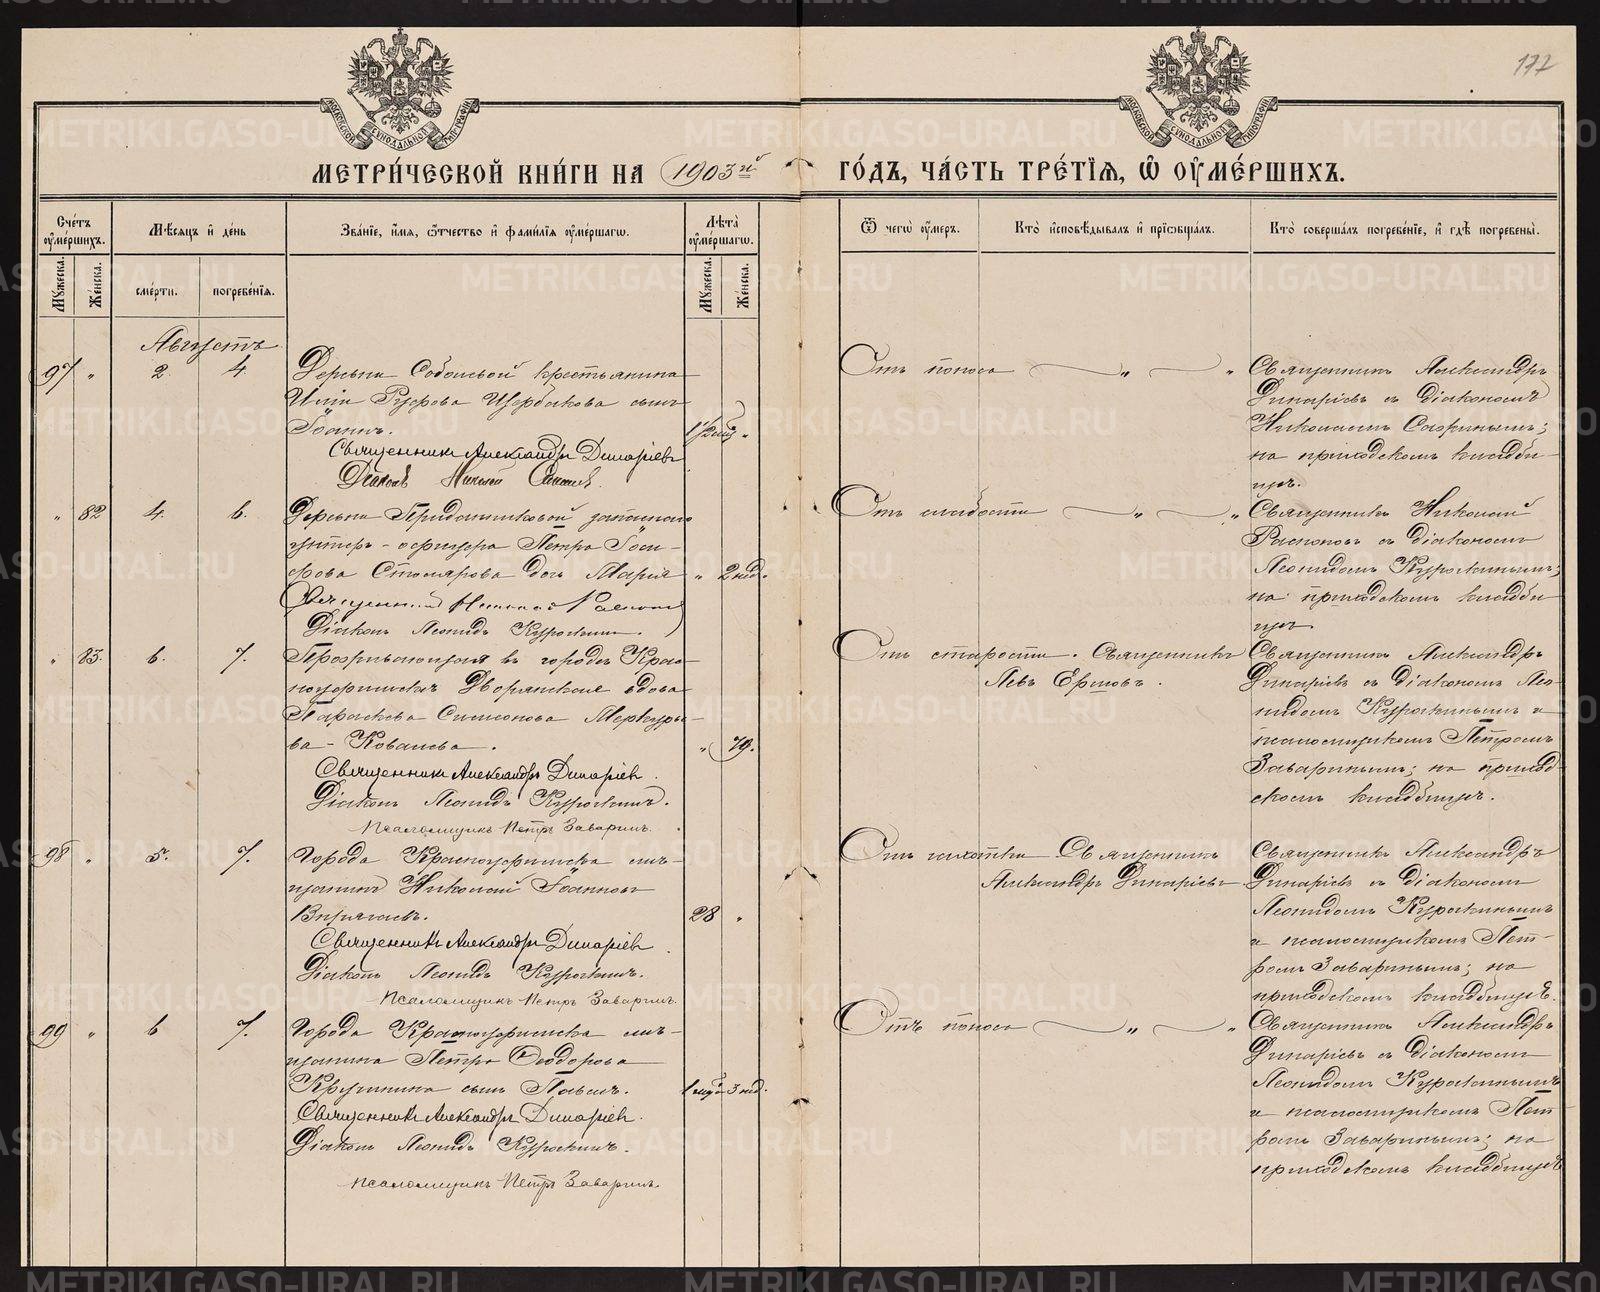 172
МЕТРИ́ЧЕСКОЙ КНИ́ГИ НА 1903й ГО́ДЪ, ЧА́СТЬ ТРЕ́ТІѦ, Ѽ ОУ҆МЕ́РШИХЪ.
Сче́тъ оу҆ме́ршихъ.
Мѣ́сяцъ и҆ де́нь
Зва́ніе, и҆́мя, ѻ҆́тчество и҆ фами́лія оу҆ме́ршагѡ.
Лѣ́та оу҆ме́ршагѡ.
Ѿ чегѡ̀ оу҆́меръ.
Кто̀ и҆сповѣ́дывалъ и҆ прїѡбща́лъ.
Кто̀ соверша́лъ погребе́ніе, и҆ гдѣ̀ погребены̀.
Мꙋ́жеска.
Же́нска.
сме́рти.
погребе́нїя.
Мꙋ́жеска.
Же́нска.
Августъ
97 " 2. 4.
Деревни крестьянина
Щербакова сынъ
Іоаннъ.
Священникъ Александръ Динаріевъ
Діаконъ Николай
Отъ поноса " "
Священникъ Александръ
Динаріевъ съ діакономъ
Николаемъ
на приходскомъ кладби-
щѣ.
" 82 4. 6.
Деревни запаснаго
унтеръ-офицера Петра Іоси-
фова Столярова дочь Марія
" 2 нед.
Священникъ Николай
Діаконъ Леонидъ Курочкинъ.
Отъ слабости " "
Священникъ Николай
съ діакономъ
Леонидомъ Курочкинымъ;
на приходскомъ кладби
щѣ.
" 83. 6. 7.
въ городѣ Крас-
ноуфимскѣ Дворянская вдова
Параскева Симеонова Меркурье-
ва-Ковалева.
" 79.
Священникъ Александръ Динаріевъ.
Діаконъ Леонидъ Курочкинъ.
Псаломщикъ Петръ Заваринъ.
Отъ старости. Священникъ
Левъ Ершовъ.
Священникъ Александръ
Динаріевъ съ діакономъ Лео-
нидомъ Курочкинымъ и
псаломщикомъ Петромъ
Заваринымъ; на приход-
скомъ кладбищѣ.
98 " 5. 7.
Города Красноуфимска мѣ-
щанинъ Николай Іоанновъ
28 "
Священникъ Александръ Динаріевъ
Діаконъ Леонидъ Курочкинъ.
Псаломщикъ Петръ Заваринъ.
Отъ чахотки Священникъ
Александръ Динаріевъ
Священникъ Александръ
Динаріевъ съ діакономъ
Леонидомъ Курочкинымъ
и псаломщикомъ Пет-
ромъ Заваринымъ; на
приходскомъ кладбищѣ.
99 " 6 7.
Города Красноуфимска мѣ-
щанина Петра Ѳеодорова
сынъ Павелъ.
3 нед.
Священникъ Александръ Динаріевъ.
Діаконъ Леонидъ Курочкинъ.
Псаломщикъ Петръ Заваринъ.
Отъ поноса " "
Священникъ Александръ
Динаріевъ съ діакономъ
Леонидомъ Курочкинымъ
и псаломщикомъ Пет-
ромъ Заваринымъ; на
приходскомъ кладбищѣ
METRIKI.GASO-URAL.RU